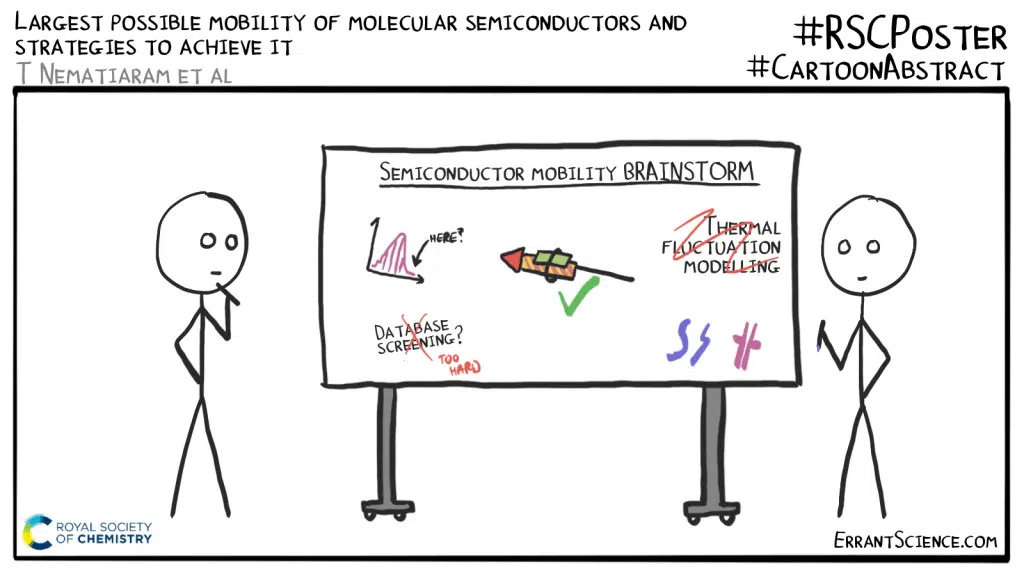 Largest possible mobility of molecular semiconductors and
strategies to achieve it
T Nematiaram et al
#RSCPoster
#CartoonAbstract
Semiconductor mobility BRAINSTORM
HERE?
Thermal
fluctuation
modelling
Database
screening?
TOO
HARD
ROYAL SOCIETY
OF CHEMISTRY
ErrantScience.com